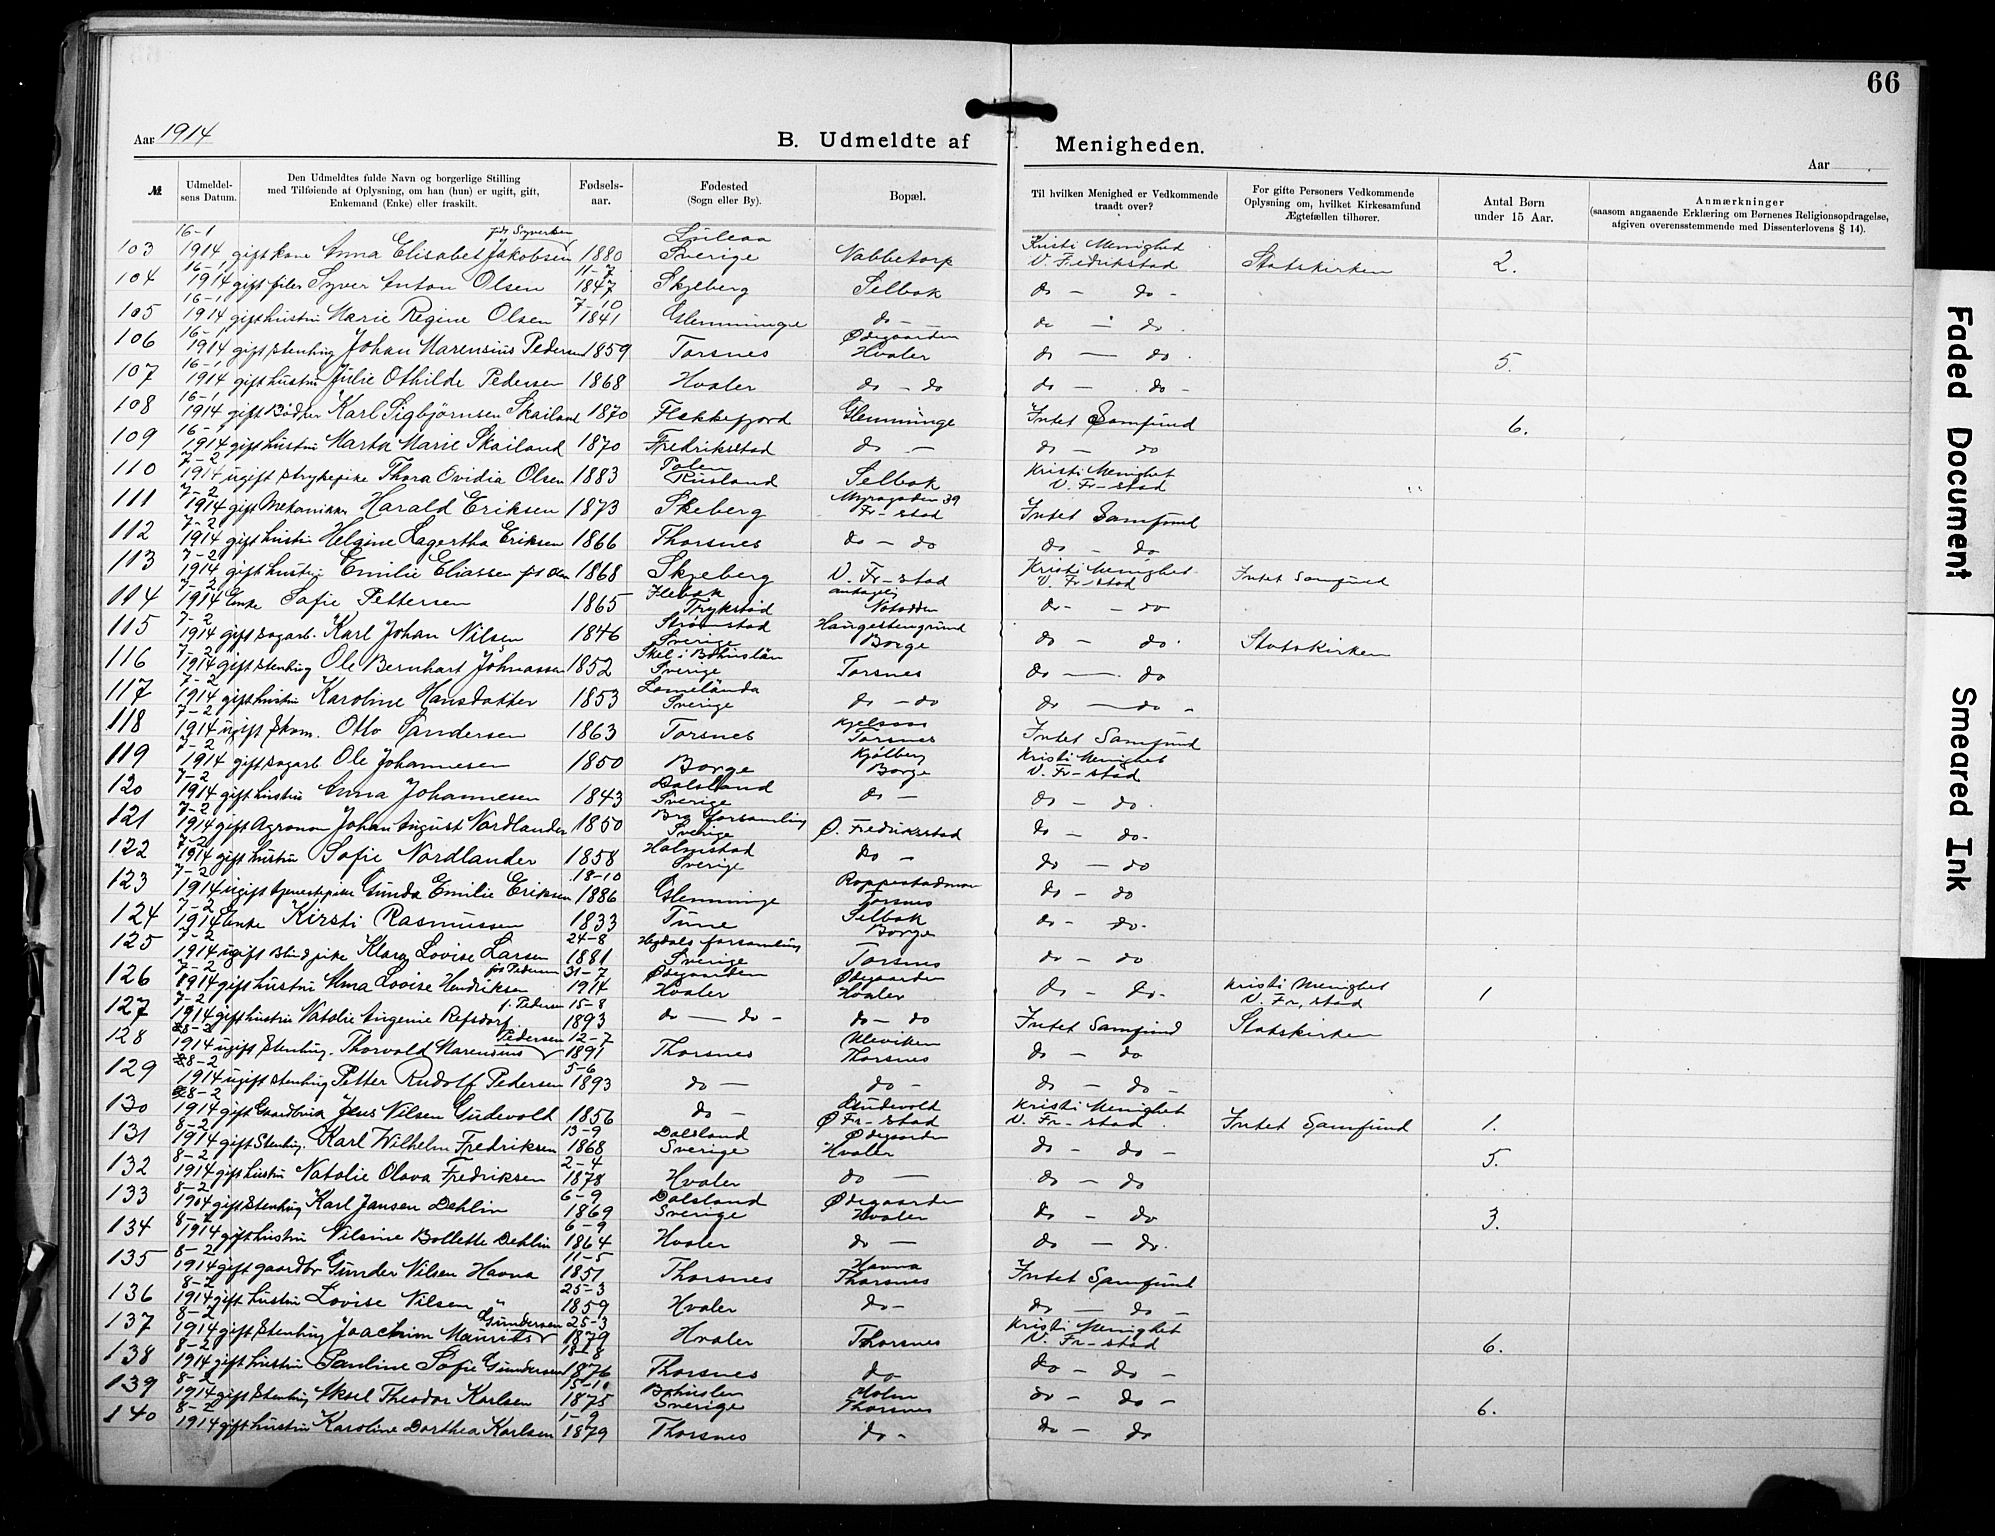 66
Aar 1914
B. Udmeldte af Menigheden.
Aar
№
Udmeldel-
sens Datum.
Den Udmeldtes fulde Navn og borgerlige Stilling
med Tilføiende af Oplysning, om han (hun) er ugift, gift,
Enkemand (Enke) eller fraskilt.
Fødsels-
aar.
Fødested
(Sogn eller By).
Bopæl.
Til hvilken Menighed er Vedkommende
traadt over?
For gifte Personers Vedkommende
Oplysning om, hvilket Kirkesamfund
Ægtefællen tilhører.
Antal Børn
under 15 Aar.
Anmærkninger
(saasom angaaende Erklæring om Børnenes Religionsopdragelse,
afgiven overensstemmende med Dissenterlovens § 14).
103 16-1 1914 gift kone Anna Elisabet Jakobsen 1880 Luleaa Sverige Nabbetorp Kristi Menighed V. Fredrikstad Statskirken 2.
104 16-1 1914 gift filer Syver Anton Olsen 11-7 1847 Skjeberg Selbak do - do -
105 16-1 1914 gift hustru Marie Regine Olsen 7-10 1841 Glemminge do - do - do
106 16-1 1914 gift stenhug Johan Marensius Pedersen 1859 Torsnes Ødegaarden Hvaler do - do 5.
107 16-1 1914 gift hustru Julie Othilde Pedersen 1868 Hvaler do - do do - do -
108 16-1 1914 gift Bødker Karl Sigbjørnsen Skailand 1870 Flekkefjord Glemminge Intet Samfund 6.
109 16-1 1914 gift hustru Marta Marie Skailand 1870 Fredriksstad do - do - do
110 7-2 1914 ugift strykepike Thora Ovidia Olsen 1883 Polen Rusland Selbak Kristi Menighet V. Fr-stad
111 7-2 1914 gift Mekaniker Harald Eriksen 1873 Skeberg Myragaden 39 Fr-stad Intet Samfund
112 7-2 1914 gift hustru Helgine Lagertha Eriksen 1866 Thorsnes do - do do - do
113 7-2 1914 gift hustru Emilie Eliassen 1868 Skjeberg V. Fr-stad Kristi Menighet V. Fr-stad Intet Samfund
114 7-2 1914 Enke Sofie Pettersen 1865 Trykstad antagelig Notodden do - do
115 7-2 1914 gift dagarb. Karl Johan Nilsen 1846 Strømstad Sverige Haugestengrund Borge do - do. Statskirken
116 7-2 1914 gift stenhug Ole Bernhart Johnassen 1852 Skel i Bohuslän Sverige Torsnes do - do
117 7-2 1914 gift hustru Karoline Hansdatter 1853 Lomelända Sverige do - do do - do -
118 7-2 1914 ugift Skom. Otto Sandersen 1863 Torsnes Kjelsaas Torsnes Intet Samfund
119 7-2 1914 gift dagarb Ole Johannesen 1850 Borge Kjølberg Borge Kristi Menighet V. Fr-stad
120 7-2 1914 gift hustru Anna Johannesen 1843 Dalsland Sverige do - do - do.
121 7-2 1914 gift Agronom Johan August Nordlander 1850 Bro forsamling Sverige Ø. Fredriksstad do - do.
122 7-2 1914 gift hustru Sofie Nordlander 1858 Halmstad Sverige do - do - do
123 7-2 1914 ugift tjenestepike Gunda Emilie Eriksen 18-10 1886 Glemminge Roppestadmoen Torsnes do - do
124 7-2 1914 Enke Kirsti Rasmussen 1833 Tune Selbak Borge do - do.
125 7-2 1914 ugift Blind pike Klara Lovise Larsen 24-8 1881 Högdals forsamling Sverige Torsnes do - do
126 7-2 1914 gift hustru Alma Lovise Hendriksen fd Pedersen 31-7 1914 Ødegaarden Hvaler Ødegaarden Hvaler do - do. Kristi Menighet V. Fr, stad 1
127 7-2 1914 gift hustru Natalie Eugenie Refsdorf f. Pedersen 15-8 1893 do - do - do - do Intet Samfund Statskirken
128 28-2 1914 ugift Stenhug. Thorvald Marensius Pedersen 12-7 1891 Thorsnes Uleviken Thorsnes do - do
129 28-2 1914 ugift stenhug Petter Rudolf Pedersen 5-6 1893 do - do - do - do -
130 28-2 1914 gift Gaardbruk Jens Nilsen Gudevold 1856 do - Gudevold Ø Fr-stad Kristi Menighet V. Fr-stad. Intet Samfund 1.
131 8-2 1914 gift Stenhug. Karl Wilhelm Fredriksen 13-9 1868 Dalsland Sverige Ødegaarden Hvaler do - do - 5.
132 8-2 1914 gift hustru Natalie Olava Fredriksen 2-4 1878 Hvaler do - do - do
133 8-2 1904 gift Stenhug Karl Jansen Dehlin 6-9 1869 Dalsland Sverige Ødegaarden Hvaler do - do 3.
134 8-2 1914 gift hustru Nilsine Bollette Dehlin 6-9 1864 Hvaler do - do - do.
135 8-2 1914 gift gaardbr Gunder Nilsen Havna 11-5 1851 Thorsnes Havna Thorsnes Intet Samfund
136 8-2 1914 gift hustru Lovise Nilsen " 25-3 1859 Hvaler do - do - do -
137 8-2 1914 gift Stenhug Joachim Maurits Gundersen 25-3 1879 Hvaler Thorsnes Kristi Menighet V. Fr-stad 6.
138 8-2 1914 gift hustru Pauline Sofie Gundersen 18-8 1876 Thorsnes do do - do -
139 8-2 1914 gift Stenhug Aksel Theodor Karlsen 15-10 1875 Bohuslen Sverige Holm Thorsnes do - do - 6.
140 8-2 1914 gift hustru Karoline Dorthea Karlsen 1-9 1879 Thorsnes do - do - do
Faded Document
Smeared Ink